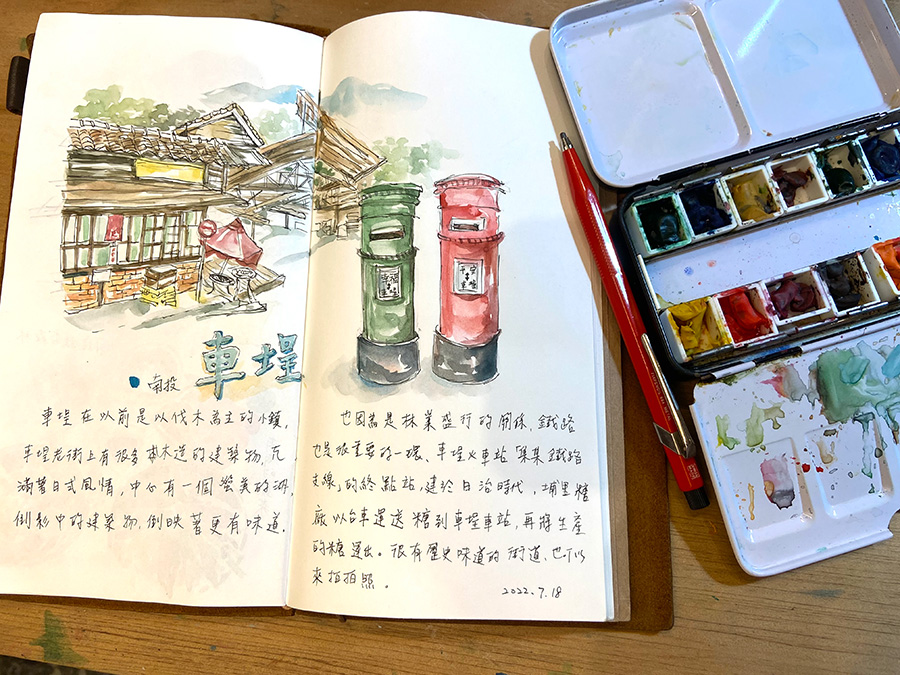 車埕
南投
車埕在以前是以伐木為主的小鎮,
車埕老街上有很多木造的建築物,瓦
滿著日式風情,中心有一個蠻美的湖,
倒影中的建築物,倒映著更有味道.
也因為是林業盛行的關係,鐵路
也是很重要的一環、車埕火車站「集集鐵路
支線」的終點站,建於日治時代,埔里糖
廠以台車運送糖到車埕車站,再將生產
的糖運出。很有歷史味道的街道、也可以
來拍拍照。
2022.7.18